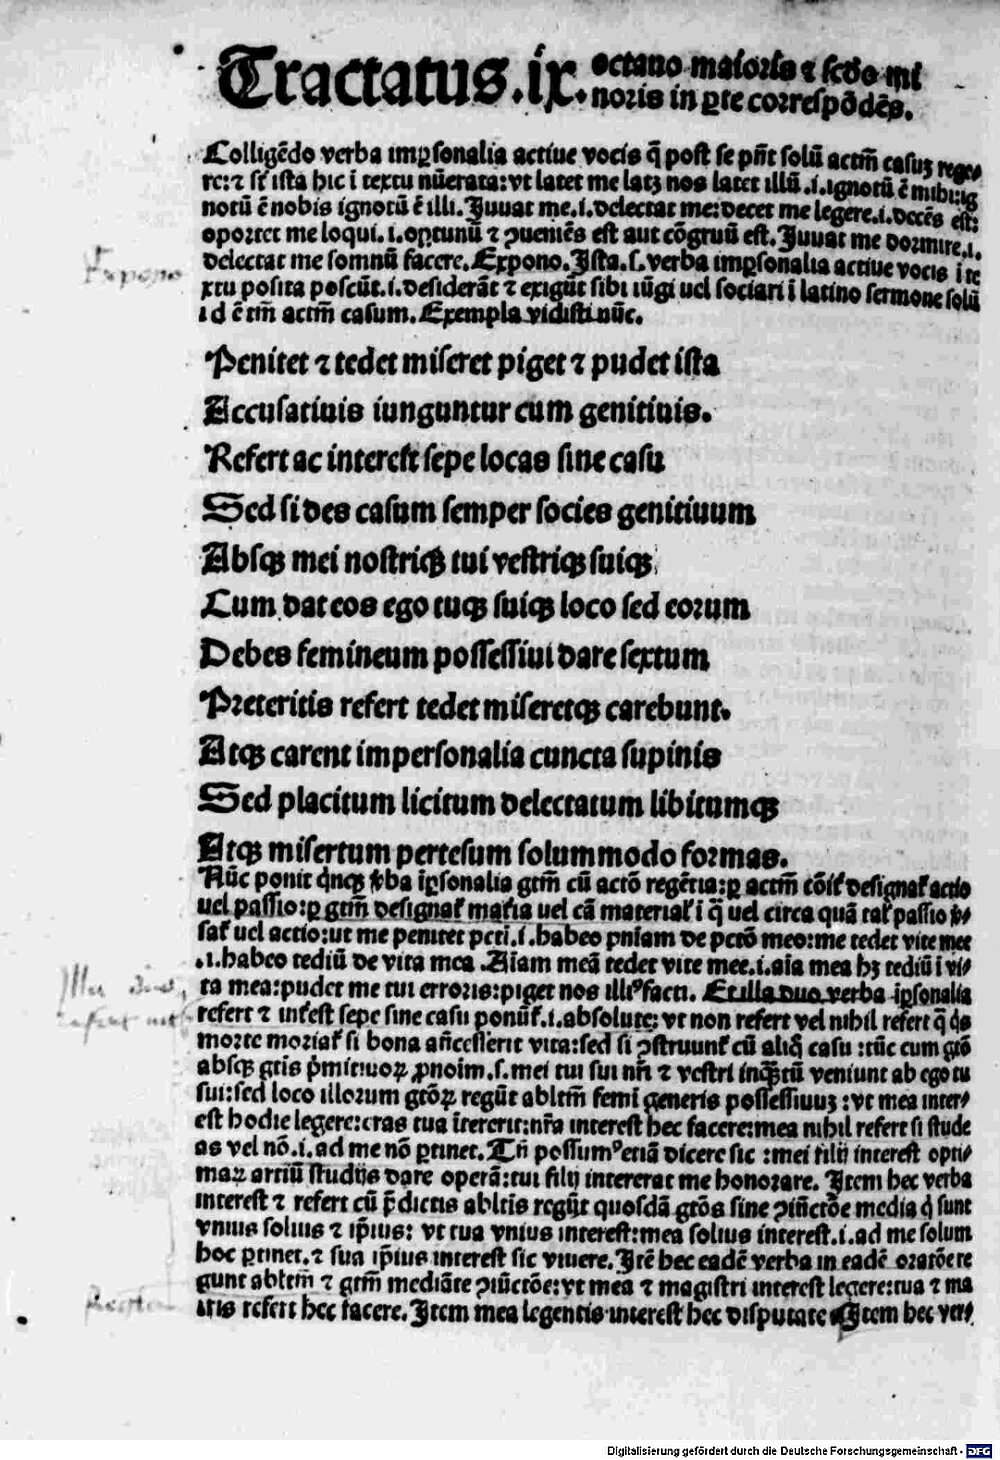 Tractatus .ix. octauo maioris ⁊ scḋo mi
noris in ꝑte correspōdēs.
Colligēdo verba imꝑsonalia actiue vocis q̄ post se pn̄t solū actm̄ casuꝫ rege-
re: ⁊ st̄ ista hic ī textu nūerata: vt latet me latꝫ nos latet illū .i. ignotū ē mihi: ig
notū ē nobis ignotū ē illi. Juuat me .i. delectat me: decet me legere .i. decēs est:
oportet me loqui .i. oꝑtunū ⁊ ꝯueniēs est aut cōgruū est. Juuat me dormire .i.
delectat me somnū facere. Expono. Ista .s. verba imꝑsonalia actiue vocis ī te
xtu posita poscūt .i. desiderāt ⁊ exigūt sibi iūgi uel sociari ī latino sermone solū
id ē tm̄ actm̄ casum. Exempla vidisti nūc.
Expono
Penitet ⁊ tedet miseret piget ⁊ pudet ista
Accusatiuis iunguntur cum genitiuis.
Refert ac interest sepe locas sine casu
Sed si des casum semper socies genitiuum
Absqꝫ mei nostriqꝫ tui vestriqꝫ suiqꝫ
Cum dat eos ego tuqꝫ suiqꝫ loco sed eorum
Debes femineum possessiui dare sextum
Preteritis refert tedet miseretqꝫ carebunt.
Atqꝫ carent impersonalia cuncta supinis
Sed placitum licitum delectatum libitumqꝫ
Atqꝫ misertum pertesum solummodo formas.
Nūc ponit qnqꝫ ꝟba īꝑsonalia gtm̄ cū actō regētia: ꝑ actm̄ cōiť designať actio
uel passio: ꝑ gtm̄ designať mať̄ia uel cā materiať i q̄ uel circa quā tať passio ꝟ-
sať uel actio: ut me penitet pcti .i. habeo pniam de pctō meo: me tedet vite mee
.i. habeo tediū de vita mea. Aiam meā tedet vite mee .i. aīa mea hꝫ tediū ī vi-
ta mea: pudet me tui erroris: piget nos illiꝰ facti. Et illa duo verba iꝑsonalia
Illa duo
refert ⁊ inťest sepe sine casu ponūť .i. absolute: vt non refert vel nihil refert q̄ qͦs
refert int
morte moriať si bona an̄cesserit vita: sed si ꝯstruunť cū aliqͦ casu: tūc cum gtō
absqꝫ gtis pͥmitiuoꝝ ꝓnoim .s. mei tui sui nr̄i ⁊ vestri inqꝫtū veniunt ab ego tu
sui: sed loco illorum gtōꝝ regūt abltm̄ femī generis possessiuuꝫ: vt mea inter-
est hodie legere: cras tua ītererit: nr̄a interest hec facere: mea nihil refert si stude
as vel nō .i. ad me nō ꝑtinet. Tn̄ possumꝰ etiā dicere sic: mei filij interest opti-
maꝝ artiū studijs dare operā: tui filij intererat me honorare. Item hec verba
interest ⁊ refert cū p̄dictis abltīs regūt quosdā gtōs sine ꝯiūctōe media qͥ sunt
vnius solius ⁊ ipīus: vt tua vnius interest: mea solius interest .i. ad me solum
hoc ꝑtinet. ⁊ sua ipīus interest sic viuere. Itē hec eadē verba in eadē oratōe re
gunt abltm̄ ⁊ gtm̄ mediāte ꝯiūctōe: vt mea ⁊ magistri interest legere: tua ⁊ ma
tris refert hec facere. Item mea legentis interest hec disputare. Item hec ver-
Digitalisierung gefördert durch die Deutsche Forschungsgemeinschaft - DFG